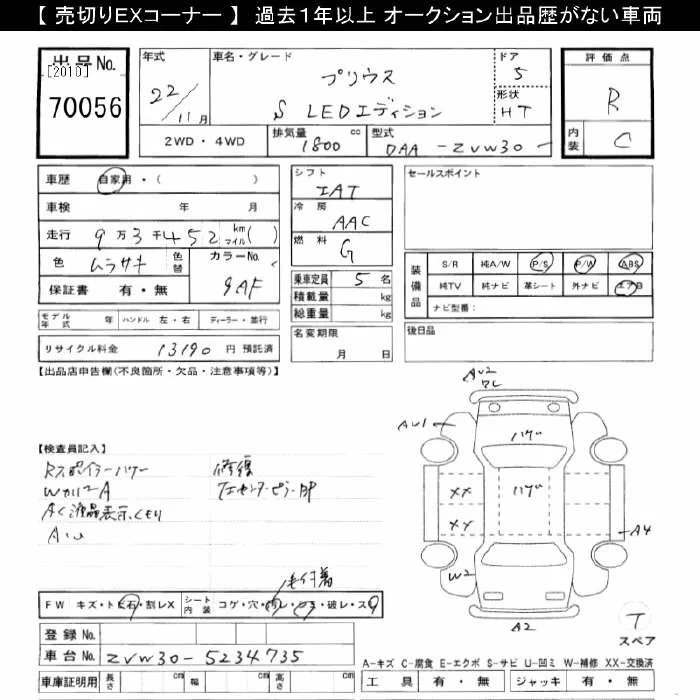 【 売切りEXコーナー 】 過去１年以上 オークション出品歴がない車両
出品No.
[2010]
70056
年式
22
11月
車名・グレード
プリウス
S LEDエディション
ドア
5
形状
HT
評価点
R
内装
C
2WD・4WD
排気量
1800 cc
型式
DAA-ZVW30-
車歴 自家用・( )
車検 年 月
走行 9万3千452 km マイル( )
色 ムラサキ 色替 カラーNo.
9AF
保証書 有・無
シフト
IAT
冷房
AAC
燃料
G
乗車定員 5 名
積載量 kg
総重量 kg
名変期限
月 日
セールスポイント
装備品
S/R 純A/W P/S P/W ABS
純TV 純ナビ 革シート 外ナビ エアB
ナビ型番:
後日品
モデル年式 年 ハンドル 左・右 ディーラー・並行
リサイクル料金 13190 円 預託済
【出品店申告欄(不良箇所・欠品・注意事項等)】
【検査員記入】
Rスポイラーハゲー
修復
AC液晶表示くもり
毛付着
FW キズ・トビ石・割レX シート内装 コゲ・穴・汚レ・シミ・破レ・スレ
登録No.
車台No. ZVW30-5234735
車庫証明用 長さ cm 幅 cm 高さ cm
AU2
ワレ
AU1
ハゲ
ハゲ
XX
XX
A4
W2
A2
T
スペア
A-キズ C-腐食 E-エクボ S-サビ U-凹ミ W-補修 XX-交換済
工具 有・無 ジャッキ 有・無